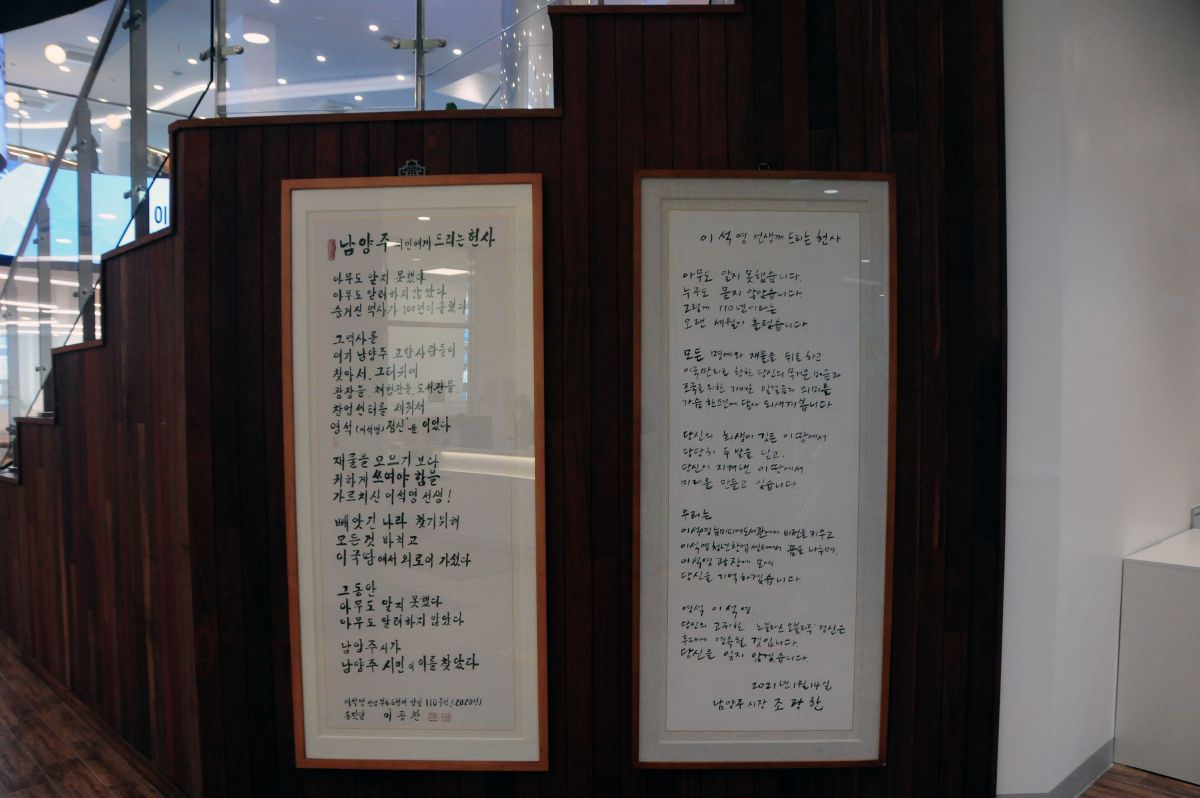 이
남양주 시민에게 드리는 헌사
아무도 알지 못했다
아무도 알려하지 않았다
숨겨진 역사가 100년이 흘렀다
그 역사를
여기 남양주 고향사람들이
찾아서, 그 터위에
광장을, 체험관을, 도서관을,
창업센터를 세워서
영석 (이석영) 정신을 이었다
재물을 모으기 보다
귀하게 쓰여야 함을
가르치신 이석영 선생!
빼앗긴 나라 찾기위해
모든것 바치고
이국땅에서 외로이 가셨다
그동안
아무도 알지 못했다
아무도 알려하지 않았다
남양주시가
남양주 시민이 이를 찾았다
이석영 선생 망명 110주년 (2020년)
이종찬
이석영 선생께 드리는 헌사
아무도 알지 못했습니다.
누구도 묻지 않았습니다.
그렇게 110년이라는
오랜 세월이 흘렀습니다
모든 명예와 재물을 뒤로 하고
이국만리로 향한 당신의 무거운 마음과
조국을 위한 가벼운 발걸음의 의미를
가슴 한편에 담아 되새겨 봅니다
당신의 희생이 깃든 이 땅에서
당당히 두 발을 딛고,
당신이 지켜낸 이 땅에서
미래를 만들고 있습니다.
우리는
이석영뉴미디어도서관에서 비전을 키우고
이석영청년창업센터에서 꿈을 나누며,
이석영광장에 모여
당신을 기억하겠습니다
영석 이석영,
당신의 고귀한 '노블레스 오블리주' 정신은
후대에 영속될 것입니다.
당신을 잊지 않겠습니다
2021년 1월 14일
남양주 시장 조광한